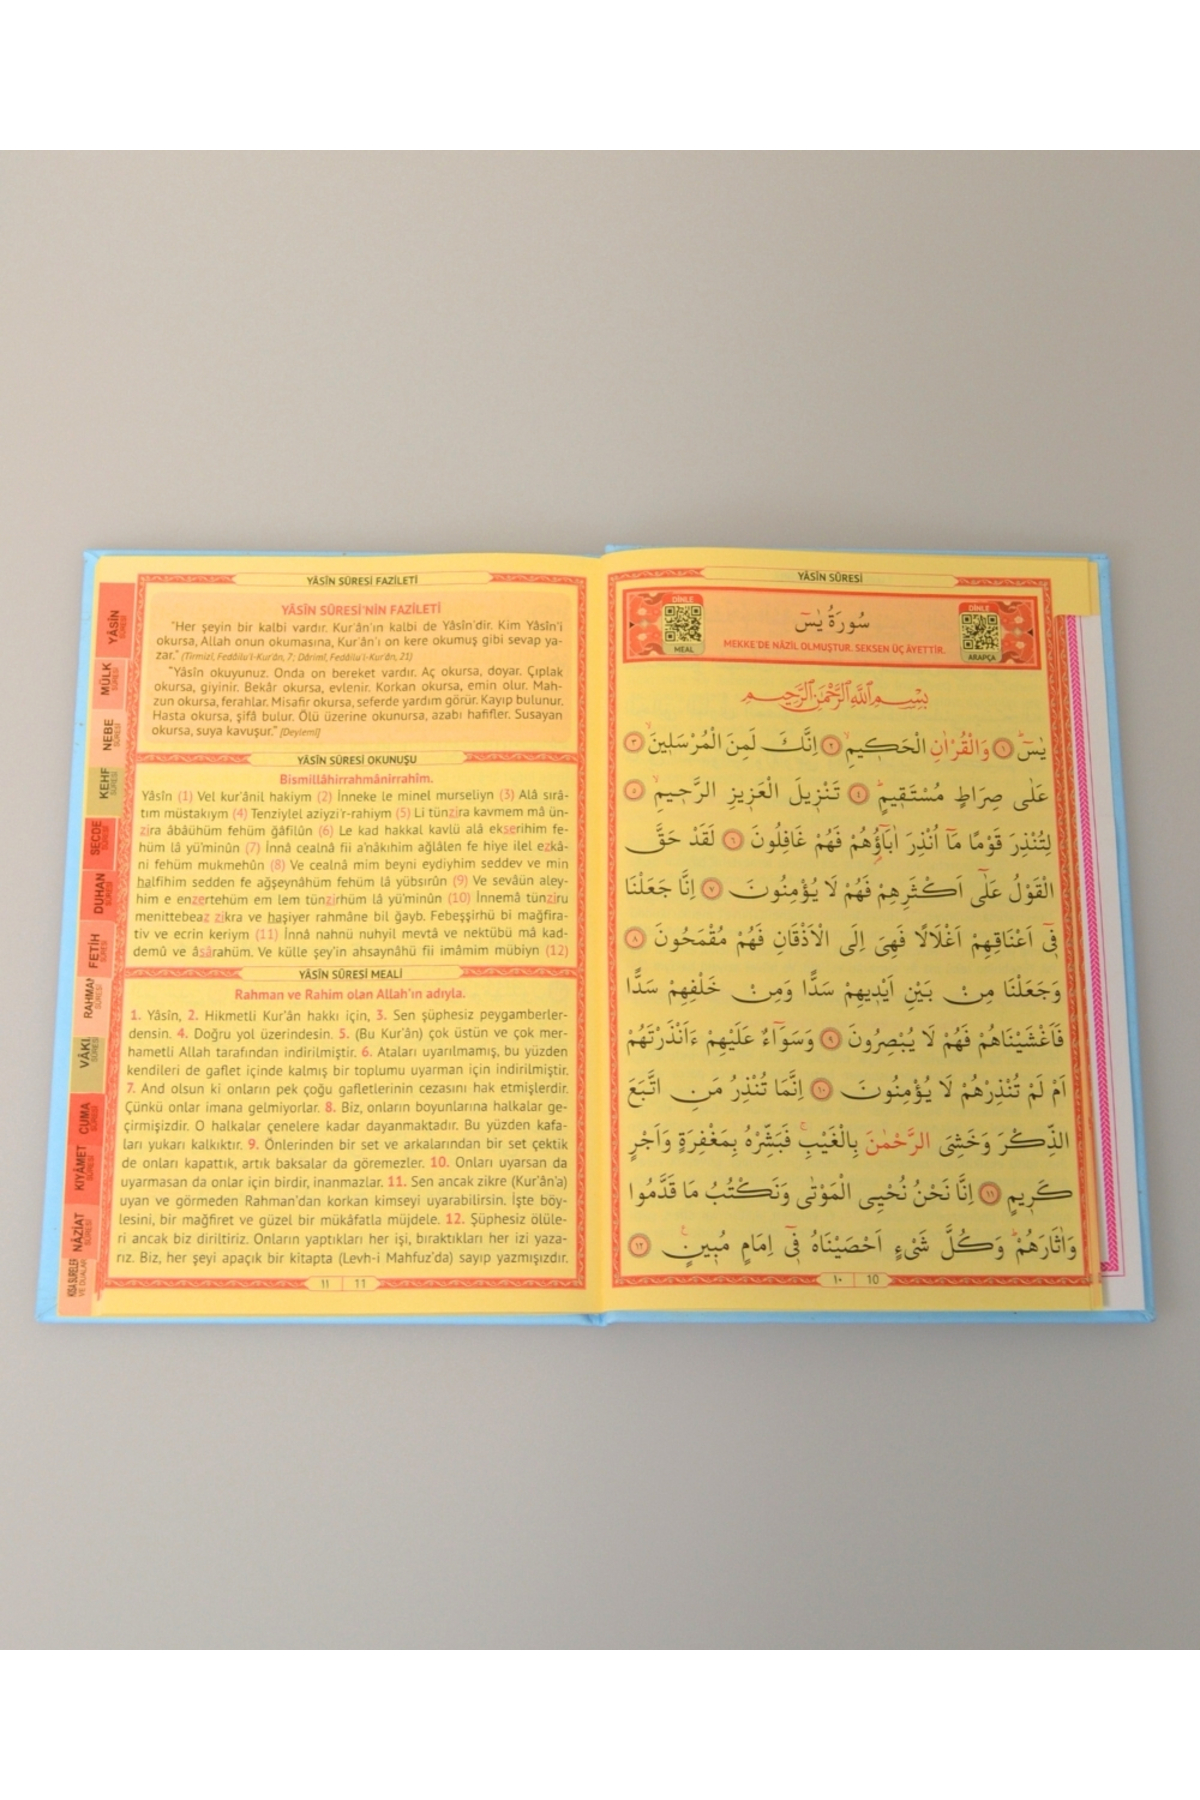 YÂSÎN SÛRESİ
DİNLE
MEAL
سُورَةُ يٰسٓ
MEKKE'DE NÂZİL OLMUŞTUR. SEKSEN ÜÇ ÂYETTİR.
DİNLE
ARAPÇA
بِسْمِ اللّٰهِ الرَّحْمٰنِ الرَّحِيمِ
يٰسٓ ﴿١﴾ وَالْقُرْاٰنِ الْحَكٖيمِ ﴿٢﴾ اِنَّكَ لَمِنَ الْمُرْسَلٖينَ ﴿٣﴾
عَلٰى صِرَاطٍ مُسْتَقٖيمٍ ﴿٤﴾ تَنْزٖيلَ الْعَزٖيزِ الرَّحٖيمِ ﴿٥﴾
لِتُنْذِرَ قَوْمًا مَٓا اُنْذِرَ اٰبَٓاؤُ۬هُمْ فَهُمْ غَافِلُونَ ﴿٦﴾ لَقَدْ حَقَّ
الْقَوْلُ عَلٰٓى اَكْثَرِهِمْ فَهُمْ لَا يُؤْمِنُونَ ﴿٧﴾ اِنَّا جَعَلْنَا
فٖٓى اَعْنَاقِهِمْ اَغْلَالًا فَهِىَ اِلَى الْاَذْقَانِ فَهُمْ مُقْمَحُونَ ﴿٨﴾
وَجَعَلْنَا مِنْ بَيْنِ اَيْدٖيهِمْ سَدًّا وَمِنْ خَلْفِهِمْ سَدًّا
فَاَغْشَيْنَاهُمْ فَهُمْ لَا يُبْصِرُونَ ﴿٩﴾ وَسَوَٓاءٌ عَلَيْهِمْ ءَاَنْذَرْتَهُمْ
اَمْ لَمْ تُنْذِرْهُمْ لَا يُؤْمِنُونَ ﴿١٠﴾ اِنَّمَا تُنْذِرُ مَنِ اتَّبَعَ
الذِّكْرَ وَخَشِىَ الرَّحْمٰنَ بِالْغَيْبِۚ فَبَشِّرْهُ بِمَغْفِرَةٍ وَاَجْرٍ
كَرٖيمٍ ﴿١١﴾ اِنَّا نَحْنُ نُحْيِى الْمَوْتٰى وَنَكْتُبُ مَا قَدَّمُوا
وَاٰثَارَهُمْۜ وَكُلَّ شَىْءٍ اَحْصَيْنَاهُ فٖٓى اِمَامٍ مُبٖينٍ۟ ﴿١٢﴾
١٠ 10
YÂSÎN SÛRESİ FAZİLETİ
YÂSÎN SÛRESİ'NİN FAZİLETİ
"Her şeyin bir kalbi vardır. Kur'ân'ın kalbi de Yâsîn'dir. Kim Yâsîn'i
okursa, Allah onun okumasına, Kur'ân'ı on kere okumuş gibi sevap ya-
zar." (Tirmizî, Fedâilu'l-Kur'ân, 7; Dârimî, Fedâilu'l-Kur'ân, 21)
"Yâsîn okuyunuz. Onda on bereket vardır. Aç okursa, doyar. Çıplak
okursa, giyinir. Bekâr okursa, evlenir. Korkan okursa, emin olur. Mah-
zun okursa, ferahlar. Misafir okursa, seferde yardım görür. Kayıp bulunur.
Hasta okursa, şifâ bulur. Ölü üzerine okunursa, azabı hafifler. Susayan
okursa, suya kavuşur." [Deylemî]
YÂSÎN SÛRESİ OKUNUŞU
Bismillâhirrahmânirrahîm.
Yâsîn (1) Vel kur'ânil hakiym (2) İnneke le minel murseliyn (3) Alâ sırâ-
tım müstakıym (4) Tenziylel aziyzi'r-rahiym (5) Li tünzira kavmem mâ ün-
zira âbâühüm fehüm ğâfilûn (6) Le kad hakkal kavlü alâ ekserihim fe-
hüm lâ yü'minûn (7) İnnâ cealnâ fii a'nâkıhim ağlâlen fe hiye ilel ezkâ-
ni fehüm mukmehûn (8) Ve cealnâ mim beyni eydiyhim seddev ve min
halfihim sedden fe ağşeynâhüm fehüm lâ yübsırûn (9) Ve sevâün aley-
him e enzertehüm em lem tünzirhüm lâ yü'minûn (10) İnnemâ tünziru
menittebeaz zikra ve haşiyer rahmâne bil ğayb. Febeşşirhü bi mağfira-
tiv ve ecrin keriym (11) İnnâ nahnü nuhyil mevtâ ve nektübü mâ kad-
demû ve âsârahüm. Ve külle şey'in ahsaynâhü fii imâmim mübiyn (12)
YÂSÎN SÛRESİ MEALİ
Rahman ve Rahim olan Allah'ın adıyla.
1. Yâsîn, 2. Hikmetli Kur'ân hakkı için, 3. Sen şüphesiz peygamberler-
densin. 4. Doğru yol üzerindesin. 5. (Bu Kur'ân) çok üstün ve çok mer-
hametli Allah tarafından indirilmiştir. 6. Ataları uyarılmamış, bu yüzden
kendileri de gaflet içinde kalmış bir toplumu uyarman için indirilmiştir.
7. And olsun ki onların pek çoğu gafletlerinin cezasını hak etmişlerdir.
Çünkü onlar imana gelmiyorlar. 8. Biz, onların boyunlarına halkalar ge-
çirmişizdir. O halkalar çenelere kadar dayanmaktadır. Bu yüzden kafa-
ları yukarı kalkıktır. 9. Önlerinden bir set ve arkalarından bir set çektik
de onları kapattık, artık baksalar da göremezler. 10. Onları uyarsan da
uyarmasan da onlar için birdir, inanmazlar. 11. Sen ancak zikre (Kur'ân'a)
uyan ve görmeden Rahman'dan korkan kimseyi uyarabilirsin. İşte böy-
lesini, bir mağfiret ve güzel bir mükâfatla müjdele. 12. Şüphesiz ölüle-
ri ancak biz diriltiriz. Onların yaptıkları her işi, bıraktıkları her izi yaza-
rız. Biz, her şeyi apaçık bir kitapta (Levh-i Mahfuz'da) sayıp yazmışızdır.
١١ 11
YÂSÎN SÛRESİ
MÜLK SÛRESİ
NEBE SÛRESİ
KEHF SÛRESİ
SECDE SÛRESİ
DUHAN SÛRESİ
FETİH SÛRESİ
RAHMAN SÛRESİ
VÂKI SÛRESİ
CUMA SÛRESİ
KIYÂMET SÛRESİ
NÂZİAT SÛRESİ
KISA SÛRELER VE DUALAR